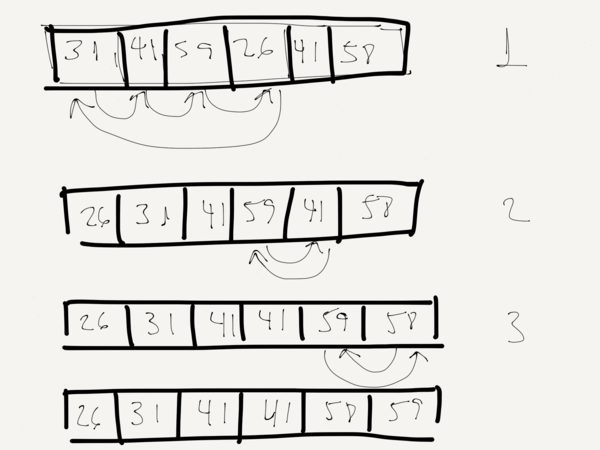 31 41 59 26 41 58 1
26 31 41 59 41 58 2
26 31 41 41 59 58 3
26 31 41 41 58 59